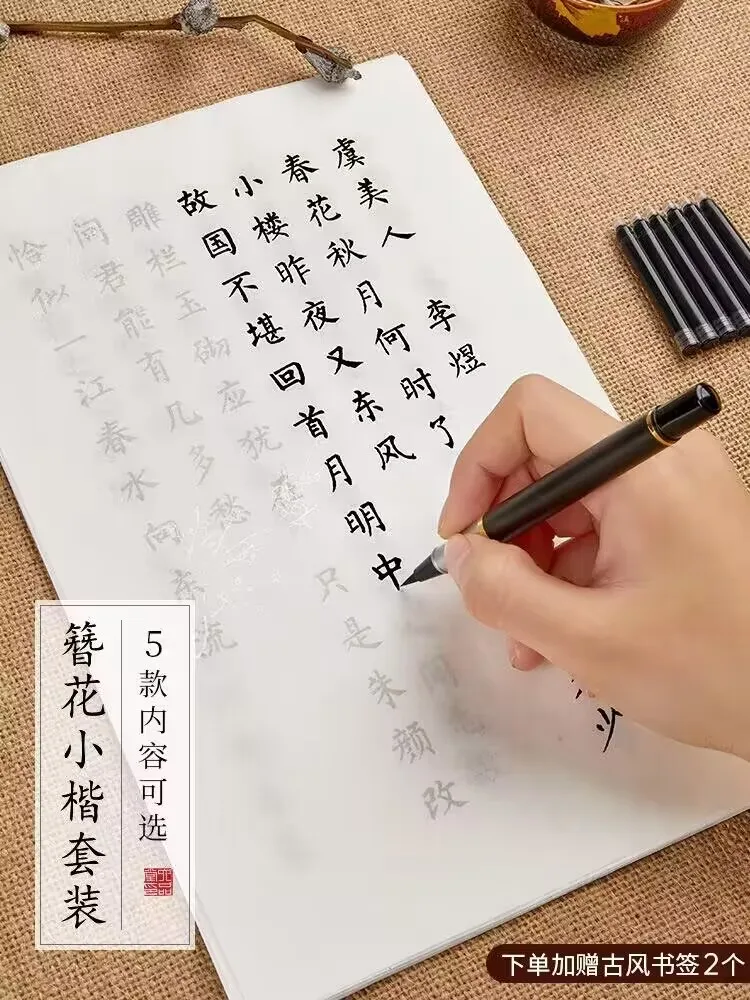 虞美人 李煜
春花秋月何时了
少
小楼昨夜又东风
故国不堪回首月明中
雕栏玉砌应犹在
只是朱颜改
问君能有几多愁
恰似一江春水向东流
簪花小楷套装
5款内容可选
下单加赠古风书签2个